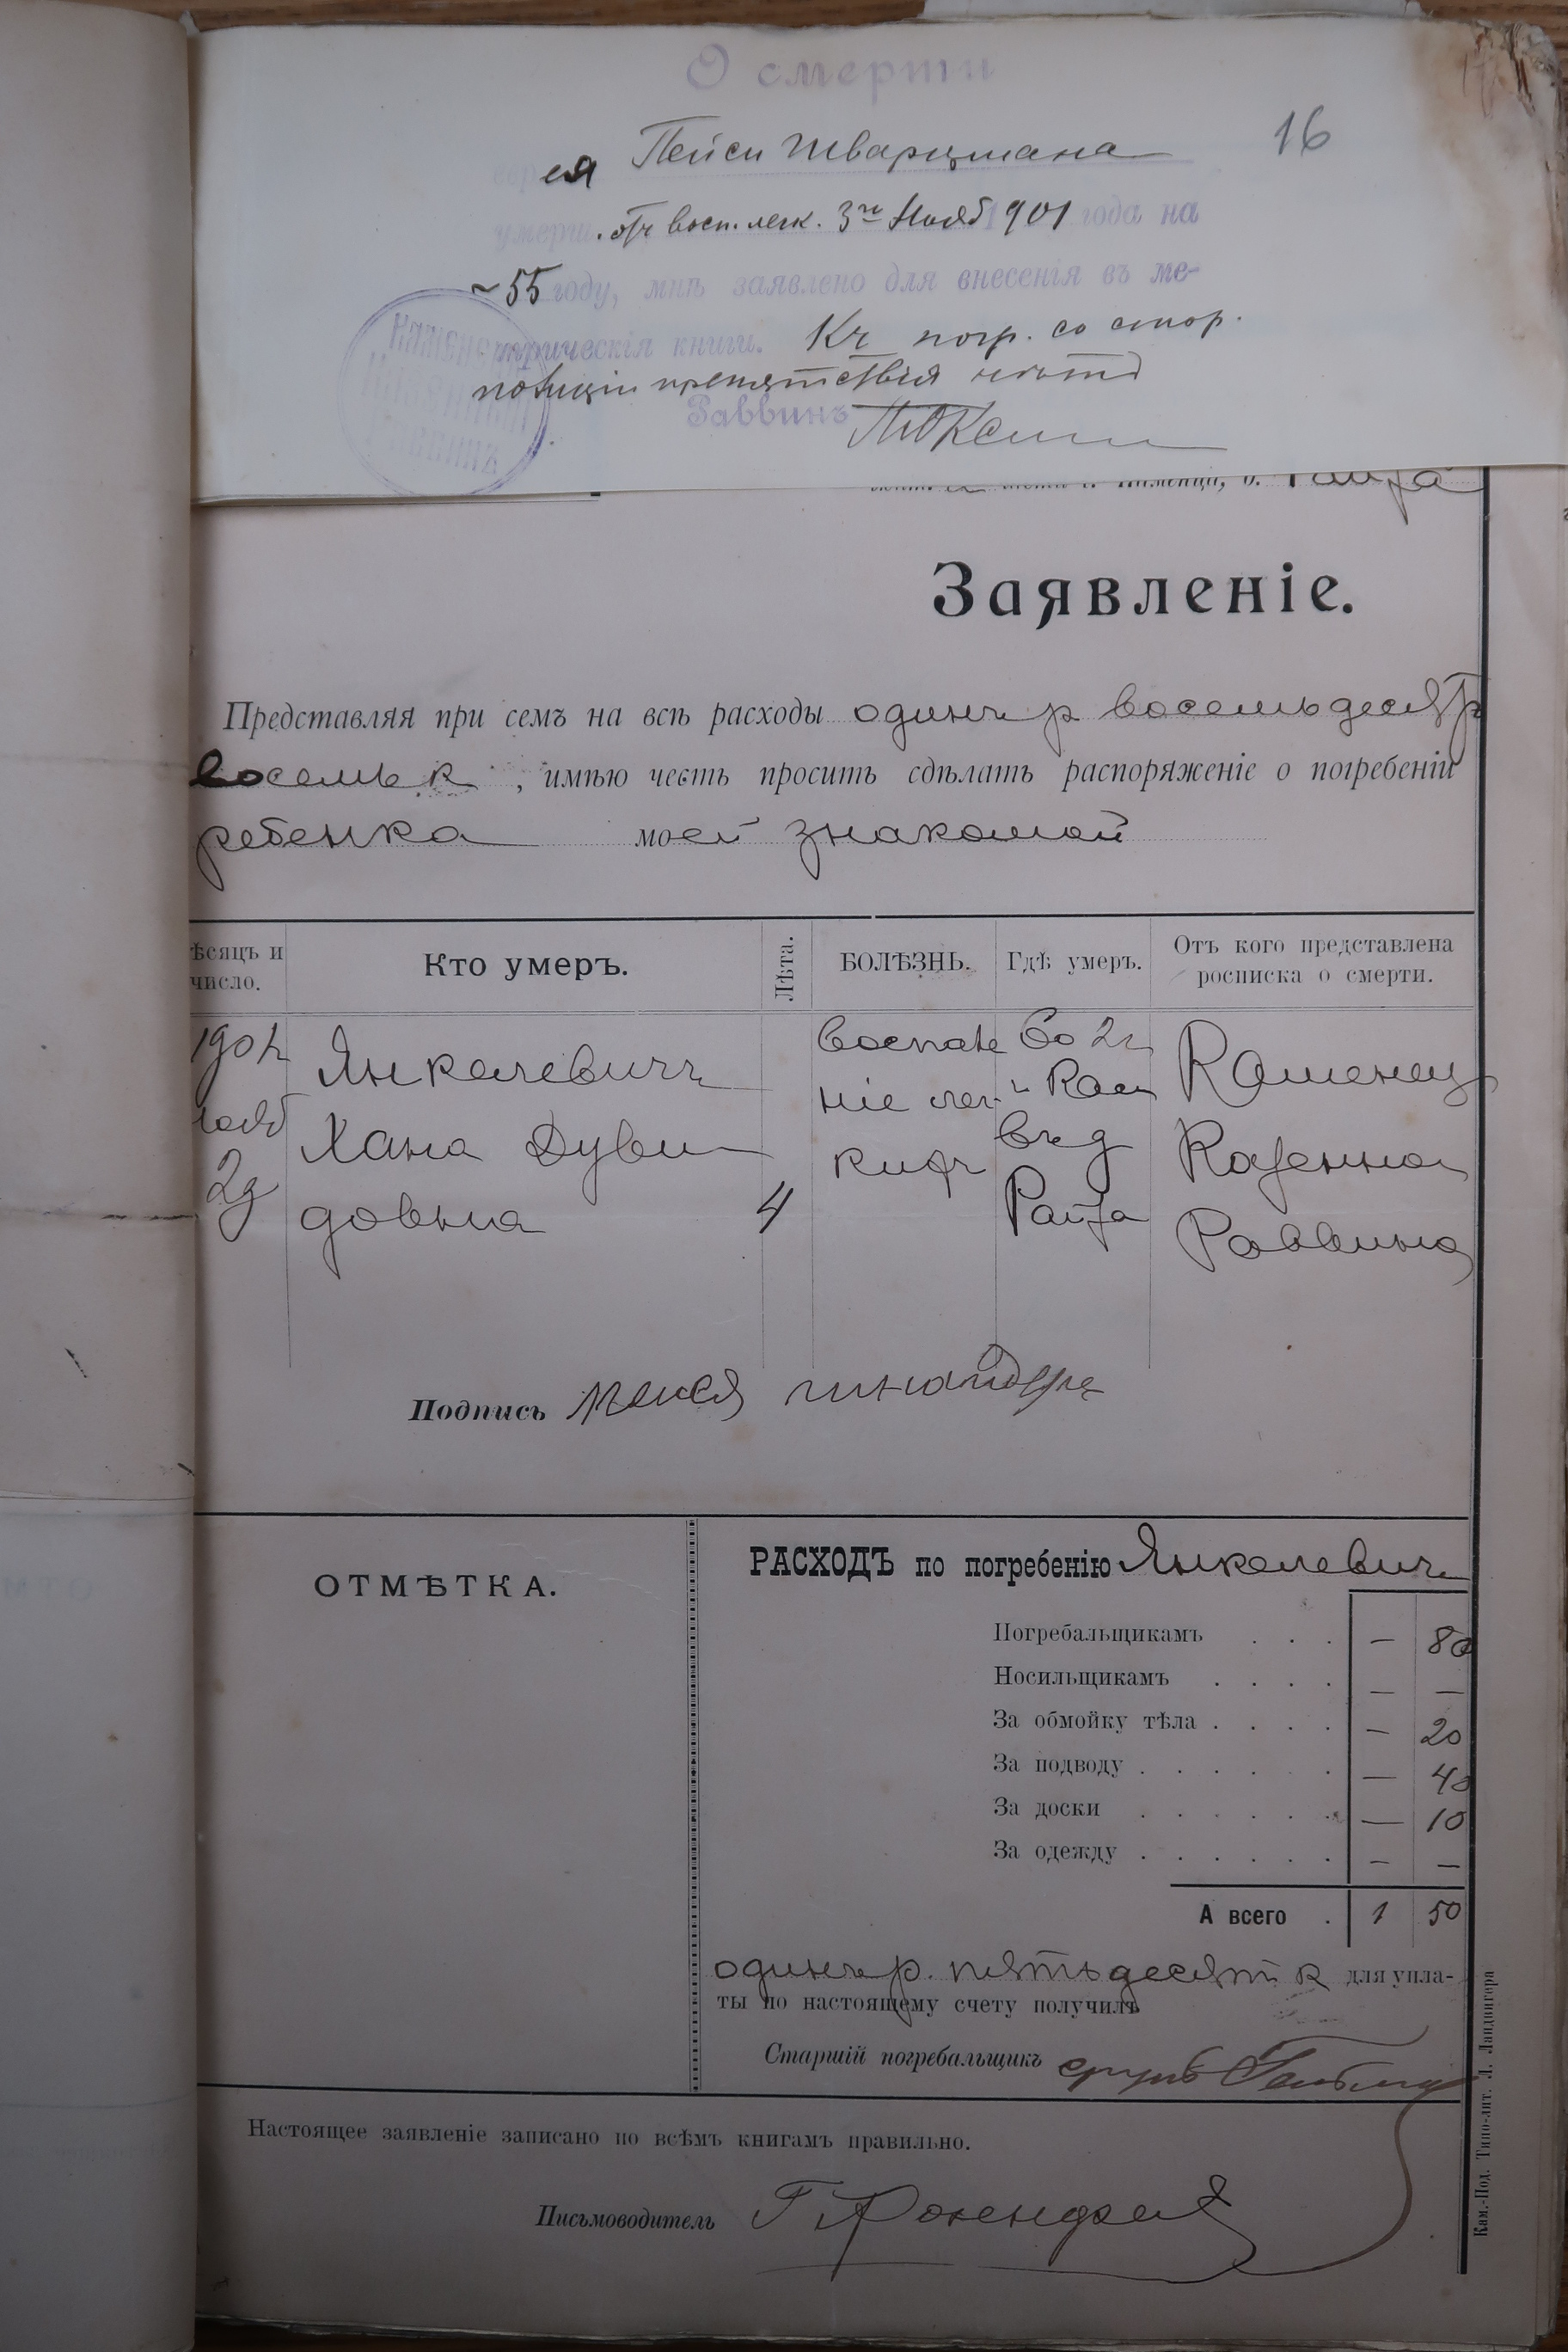 О смерти
ея Пейси Шварцмана 16
умерш. отъ восп. легк. 3го Нояб 1901 года на
55 году, мнѣ заявлено для внесенія въ ме-
трическія книги. Къ погр. со стор.
полиціи препятствія нѣтъ
Раввинъ
Заявленіе.
Представляя при семъ на всѣ расходы одинъ р восемьдесятъ
восемь к , имѣю честь просить сдѣлать распоряженіе о погребеніи
ребенка моей знакомой
ѣсяцъ и число. Кто умеръ. Лѣта. БОЛѢЗНЬ. Гдѣ умеръ. Отъ кого представлена росписка о смерти.
1901 Янкелевичъ воспале во 2 Каменец
нояб Хана Дуви ніе лег Кам Казенна
2д довна 4 кихъ въ д Райза Раввина
Подпись
ОТМѢТКА.
РАСХОДЪ по погребенію Янкелевичъ
Погребальщикамъ . . . — 80
Носильщикамъ . . . . — —
За обмойку тѣла . . . . — 20
За подводу . . . . . . — 40
За доски . . . . . . — 10
За одежду . . . . . . — —
А всего . 1 50
одинъ р. пятьдесятъ к для упла-
ты по настоящему счету получилъ
Старшій погребальщикъ
Настоящее заявленіе записано по всѣмъ книгамъ правильно.
Письмоводитель
Кам.-Под. Типо-лит. Л. Ландвигера